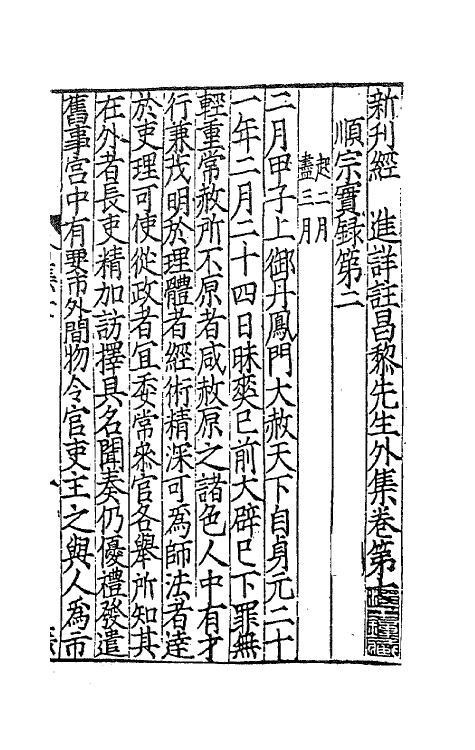 新刊經 進詳註昌黎先生外集卷第七
順宗實錄第二
起二月
盡三月
二月甲子上御丹鳳門大赦天下自貞元二十
一年二月二十四日昧爽已前大辟已下罪無
輕重常赦所不原者咸赦原之諸色人中有才
行兼茂明於理體者經術精深可為師法者達
於吏理可使從政者宜委常參官各舉所知其
在外者長吏精加訪擇具名聞奏仍優禮發遣
舊事宮中有要市外間物令官吏主之與人為市